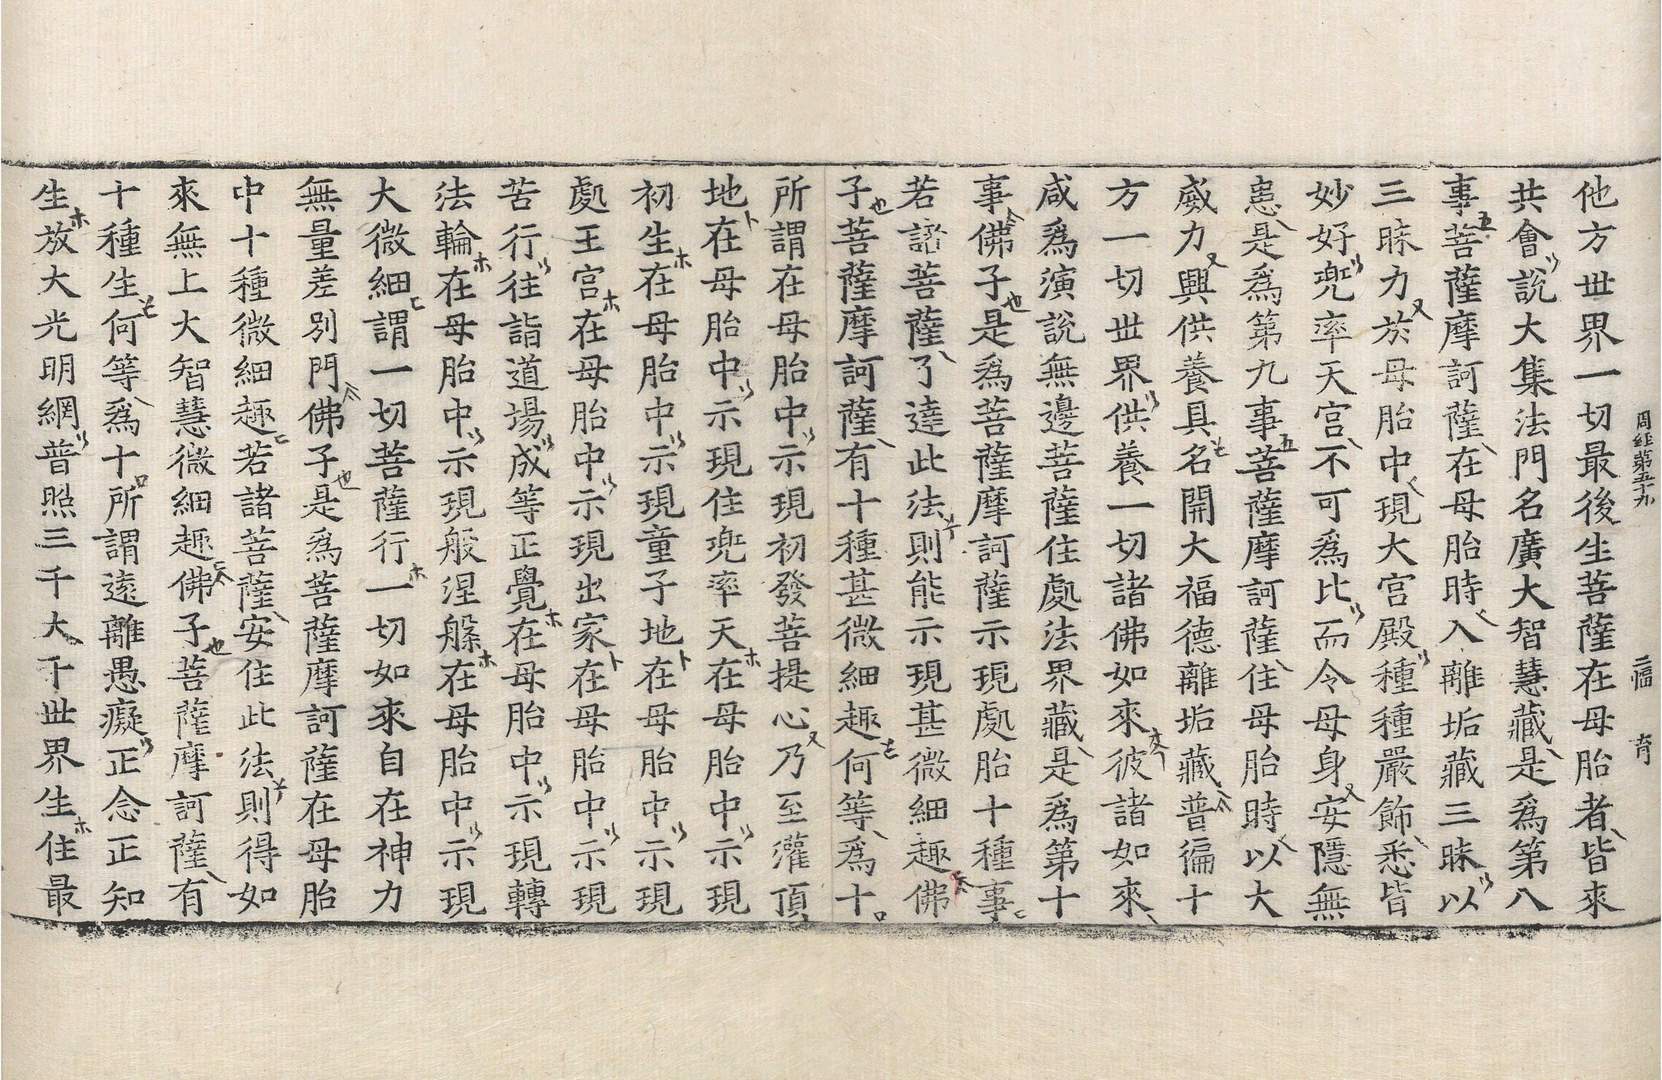 周經第五十九 二幅 育
他方世界一切最後生菩薩在母胎者皆來
共會說大集法門名廣大智慧藏是為第八
事菩薩摩訶薩在母胎時入離垢藏三昧以
三昧力於母胎中現大宮殿種種嚴飾悉皆
妙好兜率天宮不可為比而令母身安隱無
患是為第九事菩薩摩訶薩住母胎時以大
威力興供養具名開大福德離垢藏普徧十
方一切世界供養一切諸佛如來彼諸如來
咸為演說無邊菩薩住處法界藏是為第十
事佛子是為菩薩摩訶薩示現處胎十種事
若諸菩薩了達此法則能示現甚微細趣佛
子菩薩摩訶薩有十種甚微細趣何等為十
所謂在母胎中示現初發菩提心乃至灌頂
地在母胎中示現住兜率天在母胎中示現
初生在母胎中示現童子地在母胎中示現
處王宮在母胎中示現出家在母胎中示現
苦行往詣道場成等正覺在母胎中示現轉
法輪在母胎中示現般涅槃在母胎中示現
大微細謂一切菩薩行一切如來自在神力
無量差別門佛子是為菩薩摩訶薩在母胎
中十種微細趣若諸菩薩安住此法則得如
來無上大智慧微細趣佛子菩薩摩訶薩有
十種生何等為十所謂遠離愚癡正念正知
生放大光明網普照三千大千世界生住最